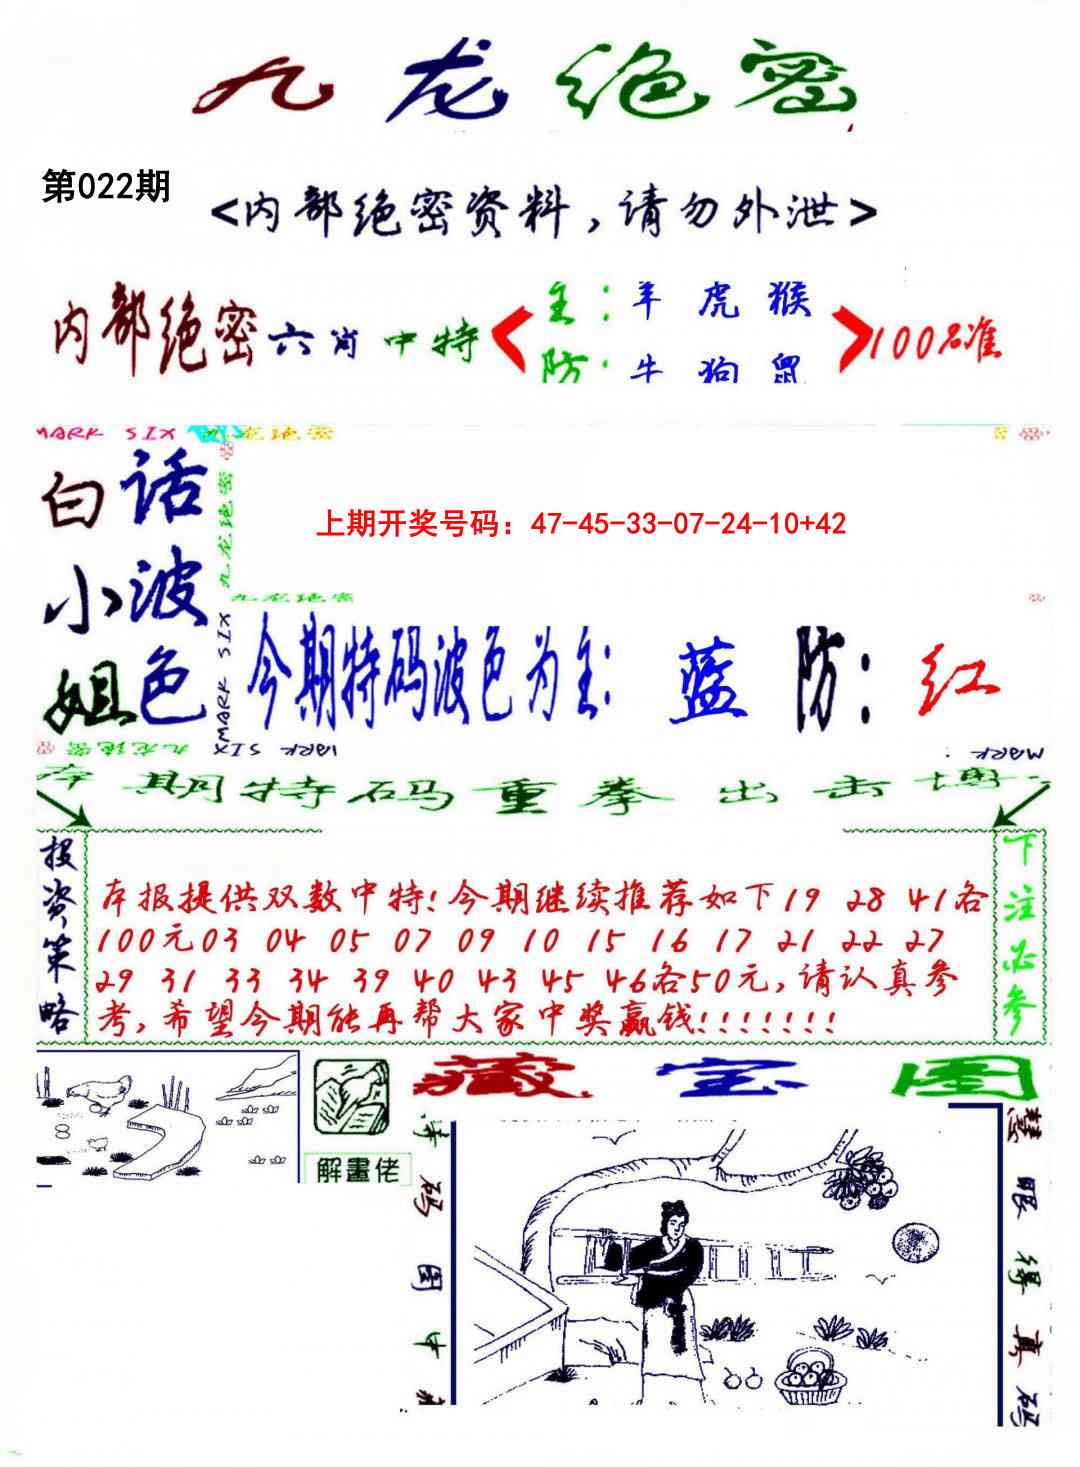 九龙绝密
第022期
<内部绝密资料,请勿外泄>
内部绝密六肖中特
主:羊 虎 猴
防:牛 狗 鼠
100%准
MARK SIX 九龙绝密
九龙绝密
九龙绝密
MARK SIX
白话
小波
姐色
上期开奖号码：47-45-33-07-24-10+42
今期特码波色为主: 蓝 防: 红
九龙绝密
MARK SIX
MARK
本期特码重拳出击博
投资策略
本报提供双数中特!今期继续推荐如下19 28 41各
100元03 04 05 07 09 10 15 16 17 21 22 27
29 31 33 34 39 40 43 45 46各50元,请认真参
考,希望今期能再帮大家中奖赢钱!!!!!!!
下注必参
解畫佬
藏宝图
寻码图中
慧眼得真码